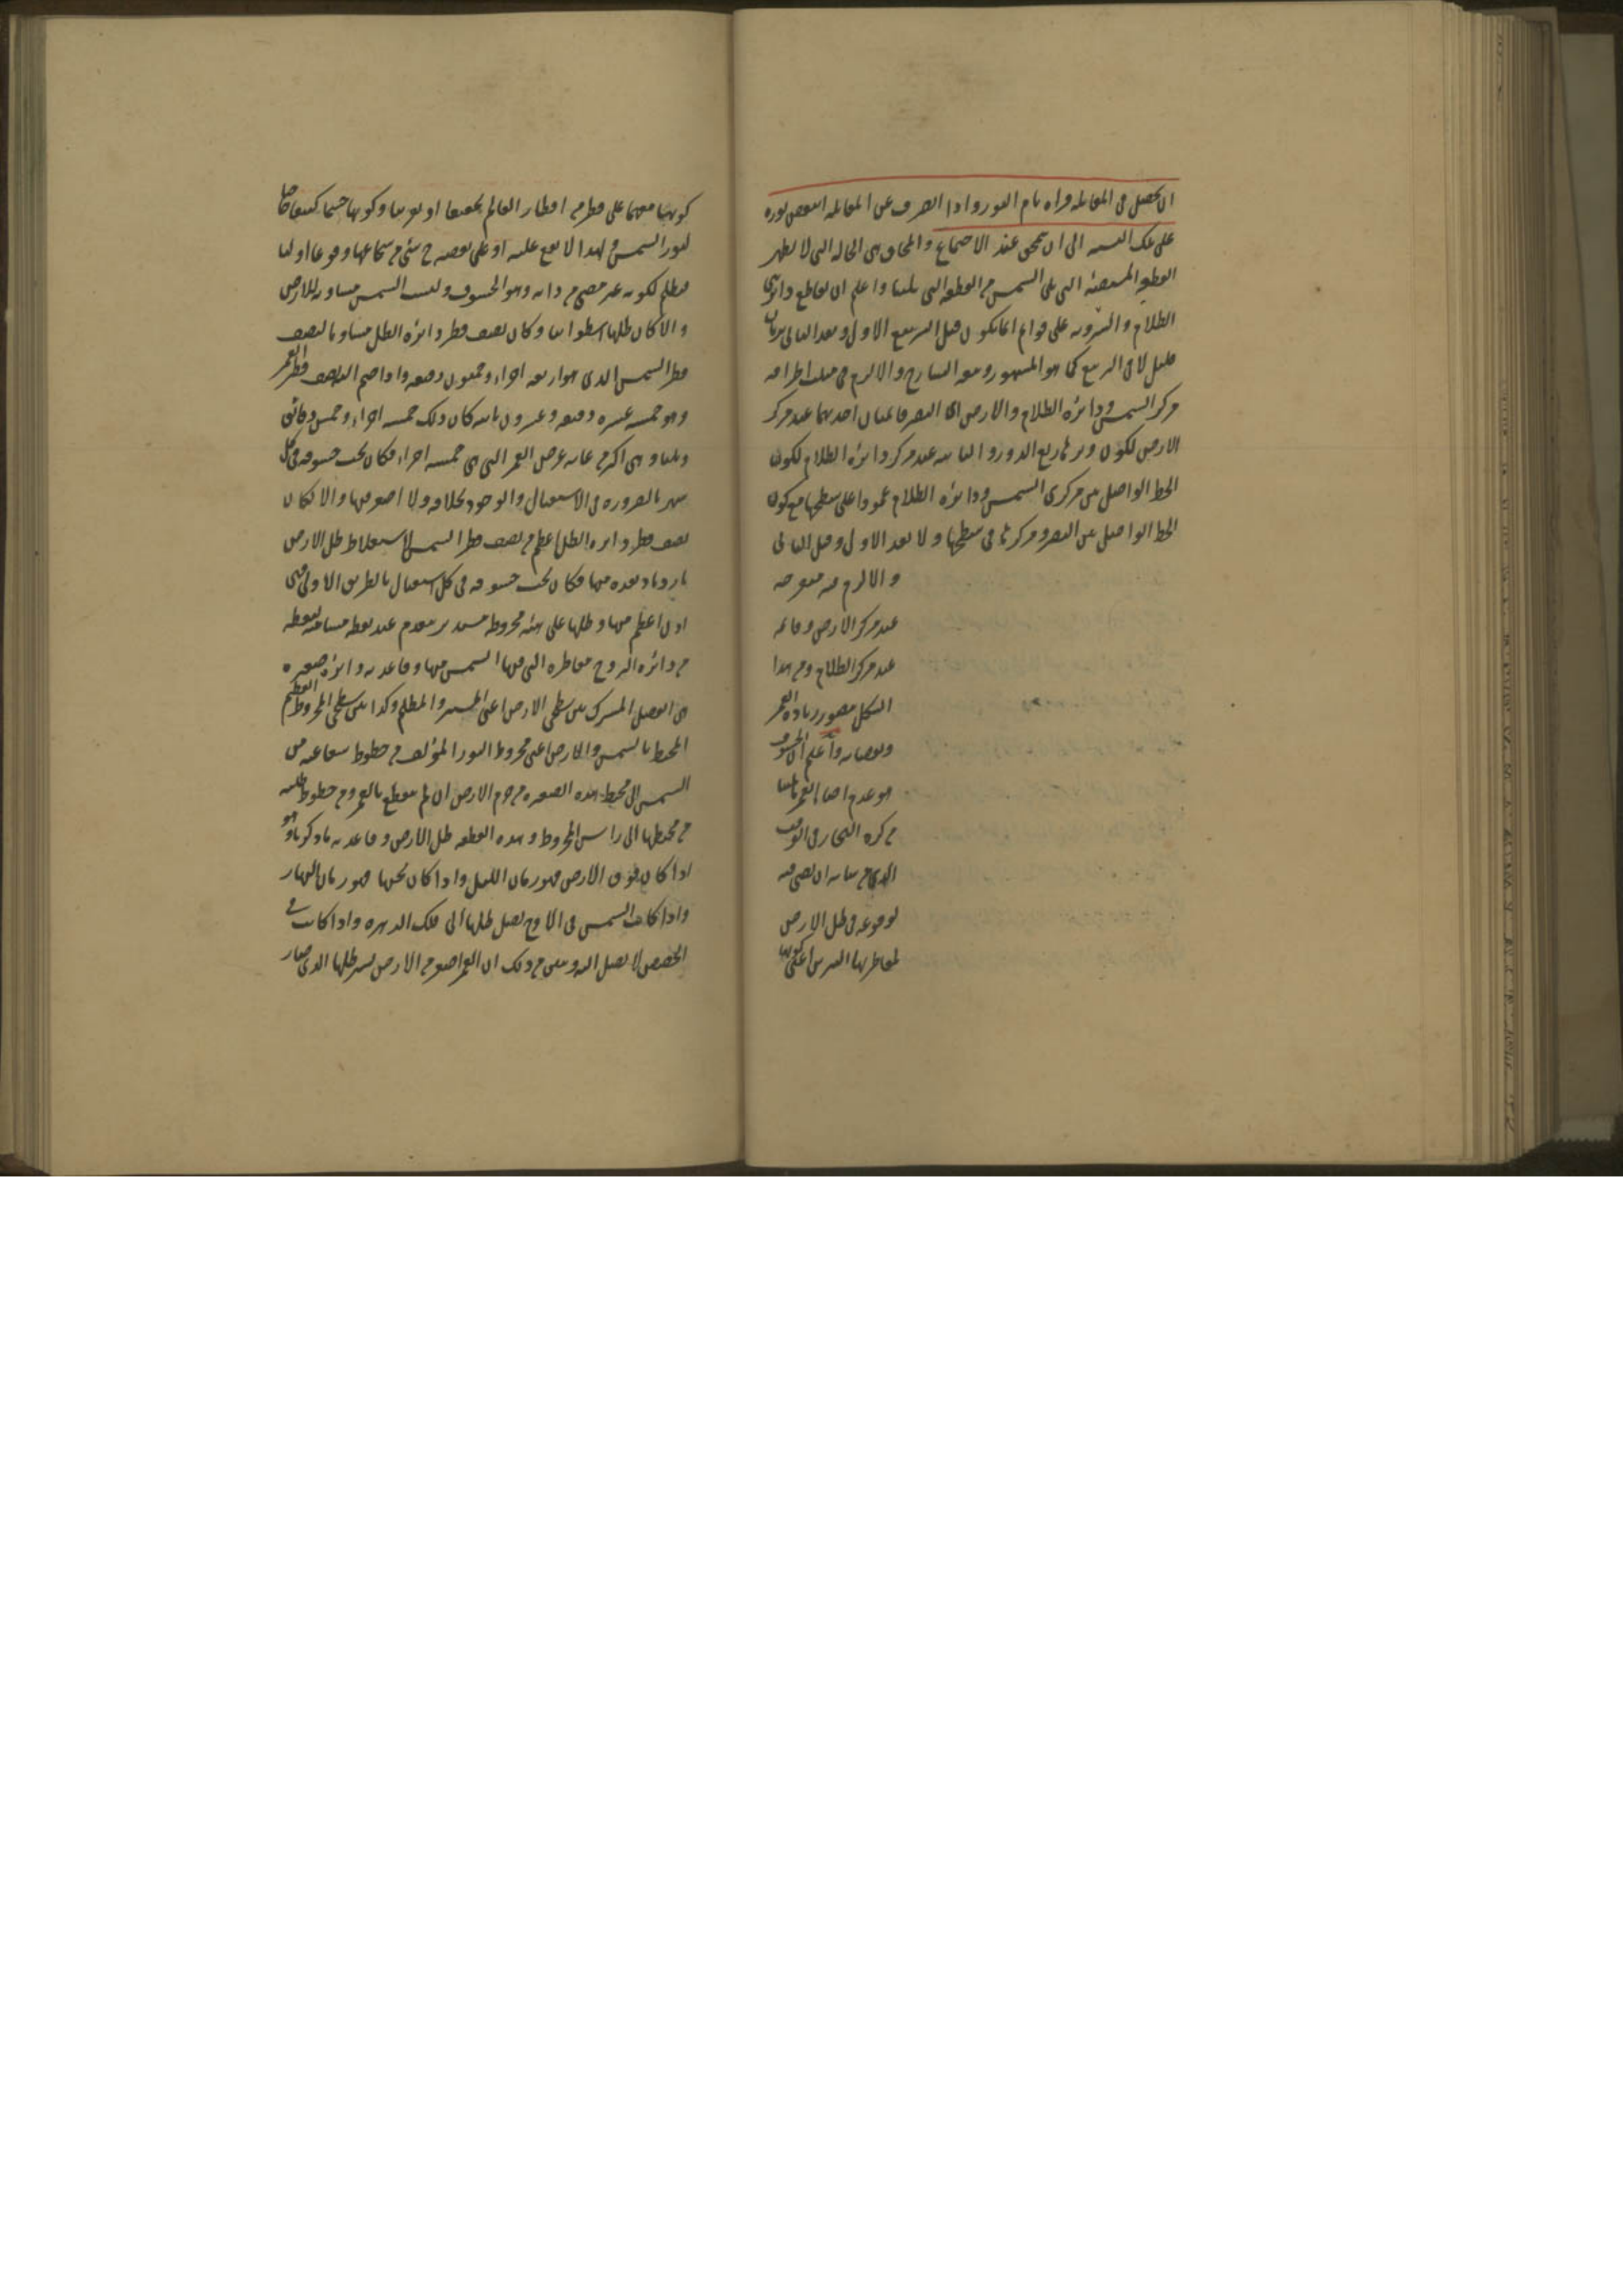 ان يحصل في المقابلة فراه تام النور واذا انصرف عن المقابلة انتقص نوره
على تلك النسبة الى ان يمحق عند الاجتماع والمحاق هي الحالة التي لا يظهر
القطعة المستضيئة التي تلي الشمس من القطعة التي تلينا واعلم ان تقاطع دائرتي
الظلام والرؤية على قوائم انما يكون قبل التربيع الاول وبعد الثاني بزمان
قليل لا في التربيع كما هو المشهور ومعه الشارح والا لزم في مثلث اطرافه
مركز الشمس ودائرة الظلام والارض اى البصر قائمتان احديهما عند مركز
الارض لكون وتر ها ربع الدور والثانية عند مركز دائرة الظلام لكون
الخط الواصل بين مركزي الشمس ودائرة الظلام عمودا على سطحها مع كون
الخط الواصل بين البصر ومركزها في سطحها ولا بعد الاول وقبل الثاني
والا لزم فيه منفرجة
عند مركز الارض وقائمة
عند مركز الظلام ومن هذا
الشكل يتصور زيادة القمر
ونقصانه واعلم ان الخسوف
هو عدم اضاءة القمر ما يلينا
من كرة البخار في الوقت
الذي من شانه ان يضئ فيه
لوقوعه في ظل الارض
لمقاطرتها النيرين اعني كونها
كونهما معهما على قطر من اقطار العالم تحقيقا او تقريبا وكونها جسما كثيفا حاجبا
لنور الشمس ولهذا لا يقع عليه او على بعضه ح شئ من شعاعها وقوعا اوليا
فيظلم لكونه غير مضئ من ذاته وهو الخسوف وليست الشمس مساوية للارض
والا كان ظلها اسطوانيا وكان نصف قطر دائرة الظل مساويا لنصف
قطر الشمس الذي هو اربعة اجزاء وخمسون دقيقة واذا ضم اليه نصف قطر القمر
وهو خمسة عشره دقيقة وعشرون ثانية كان ذلك خمسة اجزاء وخمس دقائق
وثلثا وهي اكثر من غاية عرض القمر التي هي خمسة اجزاء فكان يجب خسوفه في كل
شهر بالضرورة في الاستقبال والوجود بخلافه ولا اصغر منها والا لكان
نصف قطر دائرة الظل اعظم من نصف قطر الشمس لاستغلاظ ظل الارض
بازدياد بعده منها فكان يجب خسوفه في كل استقبال بالطريق الاولى فهي
اذن اعظم منها وظلها على هيئة مخروط مستدير ينعدم عند نقطة مسامتة لنقطة
من دائرة البروج مقاطرة التي فيها الشمس منها وقاعدته دائرة صغيرة
هي الفصل المشترك بين سطحي الارض اعني المستنير والمظلم وكذا بين سطحي المخروط العظيم
المحيط بالشمس والارض اعني مخروط النور المؤلف من خطوط شعاعية من
الشمس الى محيط هذه الصغيرة من جرم الارض ان لم ينقطع بالقمر ومن خطوط ظلية
من محيطها الى راس المخروط وهذه القطعة ظل الارض وقاعدته ما ذكرنا وهو
اذا كان فوق الارض فهو زمان الليل واذا كان تحتها فهو زمان النهار
واذا كانت الشمس في الاوج يصل ظلها الى فلك الزهرة واذا كانت في
الحضيض لا يصل اليه وتبين من ذلك ان القمر اصغر من الارض لستر ظلها الذي صار